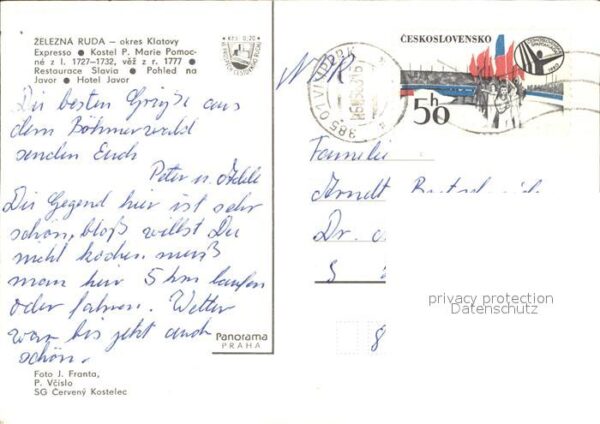 ŽELEZNÁ RUDA – okres Klatovy
Expresso ● Kostel P. Marie Pomoc-
né z l. 1727–1732, věž z r. 1777 ●
Restaurace Slavia ● Pohled na
Javor ● Hotel Javor
Kčs 0,20
Die besten Grüße aus
dem Böhmerwald
senden Euch
Peter u. Adele
Die Gegend hier ist sehr
schön, bloß willst Du
nicht kochen muß
man hier 5 km laufen
oder fahren. Wetter
war bis jetzt auch
schön.
Foto J. Franta,
P. Včislo
SG Červený Kostelec
Panorama
PRAHA
385 01 VIMPERK
ČESKOSLOVENSKO
50 h
Familie
Arndt
Dr.
8
privacy protection
Datenschutz